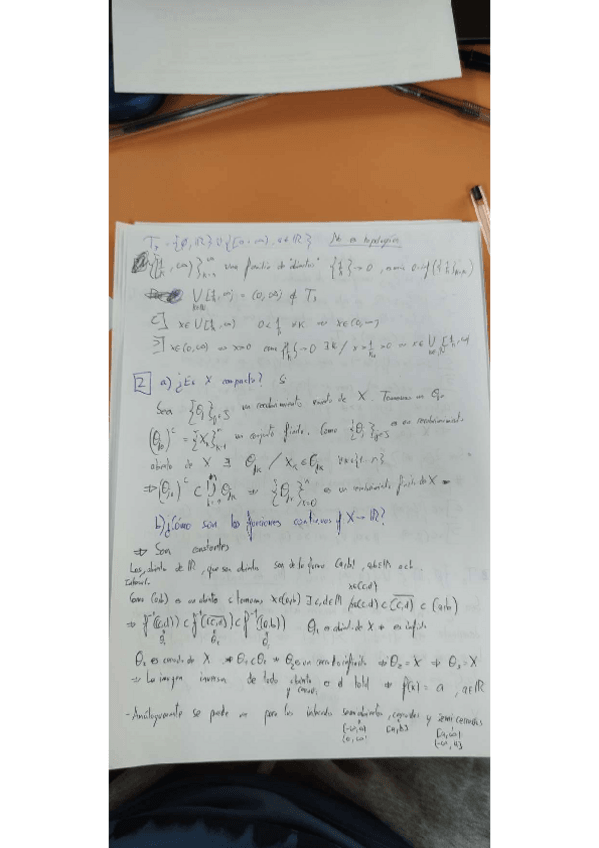 T₃ = {∅, ℝ} ∪ {[a, ∞), a∈ℝ} No es topología
{[1/n, ∞)}ₙ₌₁^∞ una familia de "abiertos" {1/n} → 0
⋃ [1/n, ∞) = (0, ∞) ∉ T₃
⊂] x∈⋃[1/n, ∞) 0 < 1/n ⇒ x∈(0, ∞)
⊃] x∈(0, ∞) ⇒ x>0 como {1/n} → 0 ∃ k /
2 a) ¿Es X compacto? Sí
Sea {θj}j∈J un recubrimiento abierto de X. Tomamos un θj₀
(θj₀)ᶜ = {xₖ}ₖ₌₁ⁿ un conjunto finito. Como {θj}j∈J es un recubrimiento
abierto de X ∃ θjₖ / xₖ∈θjₖ ∀k∈{1…n}
⇒ (θj₀)ᶜ ⊂ ⋃ θjₖ ⇒ {θjₖ}ₖ₌₀ⁿ es un recubrimiento finito de X
b) ¿Cómo son las funciones continuas f X→ℝ?
⇒ Son constantes
Los abiertos de ℝ, que son abiertos son de la forma (a,b), a,b∈ℝ a<b
Como (a,b) es un abierto si tomamos x∈(a,b) ∃ c,d∈ℝ / x∈(c,d) ⊂ [c,d] ⊂ (a,b)
⇒ f⁻¹((c,d)) ⊂ f⁻¹([c,d]) ⊂ f⁻¹((a,b)) θ₁ es abierto de X ⇒ es infinito
θ₂ es cerrado de X ⇒ θ₁⊂θ₂ ⇒ θ₂ es un cerrado infinito ⇒ θ₂ = X ⇒ θ₃ = X
⇒ La imagen inversa de todo abierto es el total ⇒ f(x) = a, a∈ℝ
- Análogamente se puede ver para los intervalos semiabiertos, cerrados y semicerrados
(-∞, a) [a, b] [a, ∞)
(a, ∞) (-∞, a]